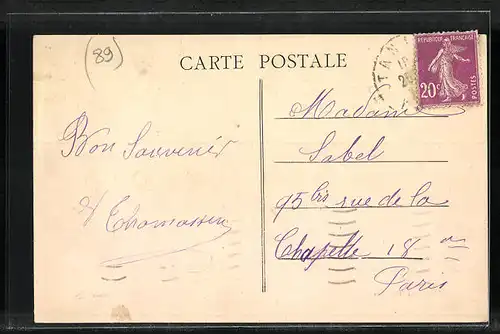 89
CARTE POSTALE
REPUBLIQUE FRANÇAISE
20c
POSTES
Bon Souvenir
Madame
Sabel
95 bis rue de la
Chapelle 18e
Paris